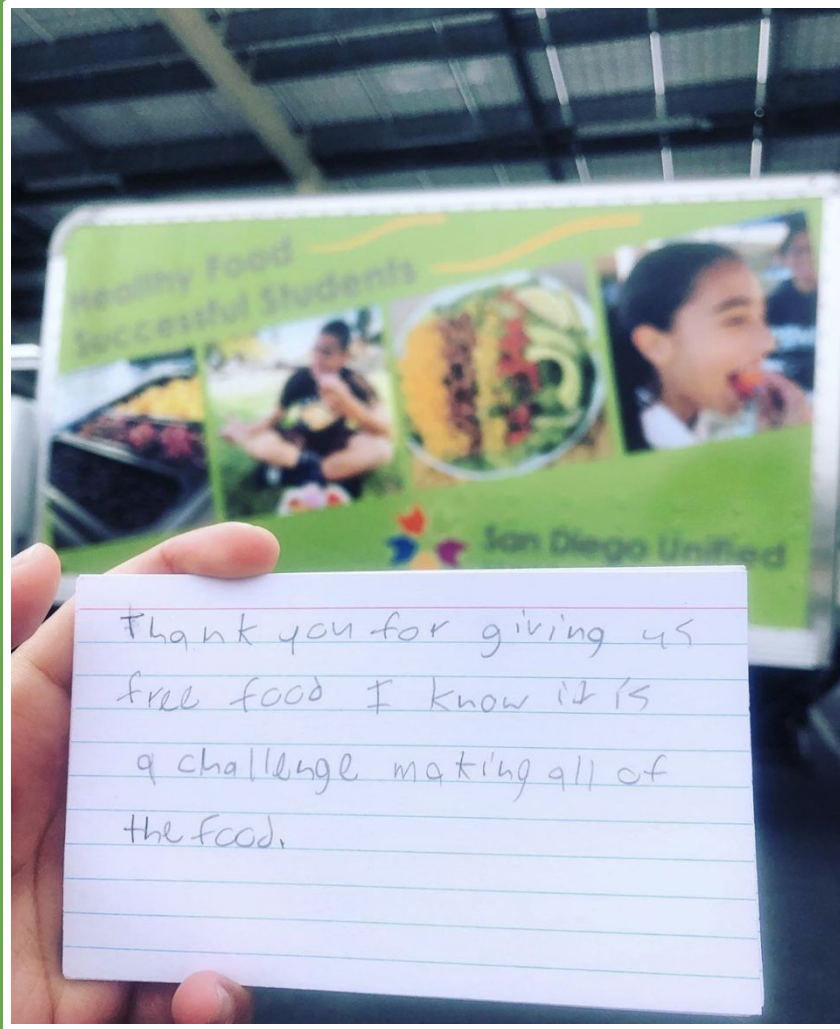 Healthy Food
Successful Students
San Diego Unified
Thank you for giving us
free food I know it is
a challenge making all of
the food.